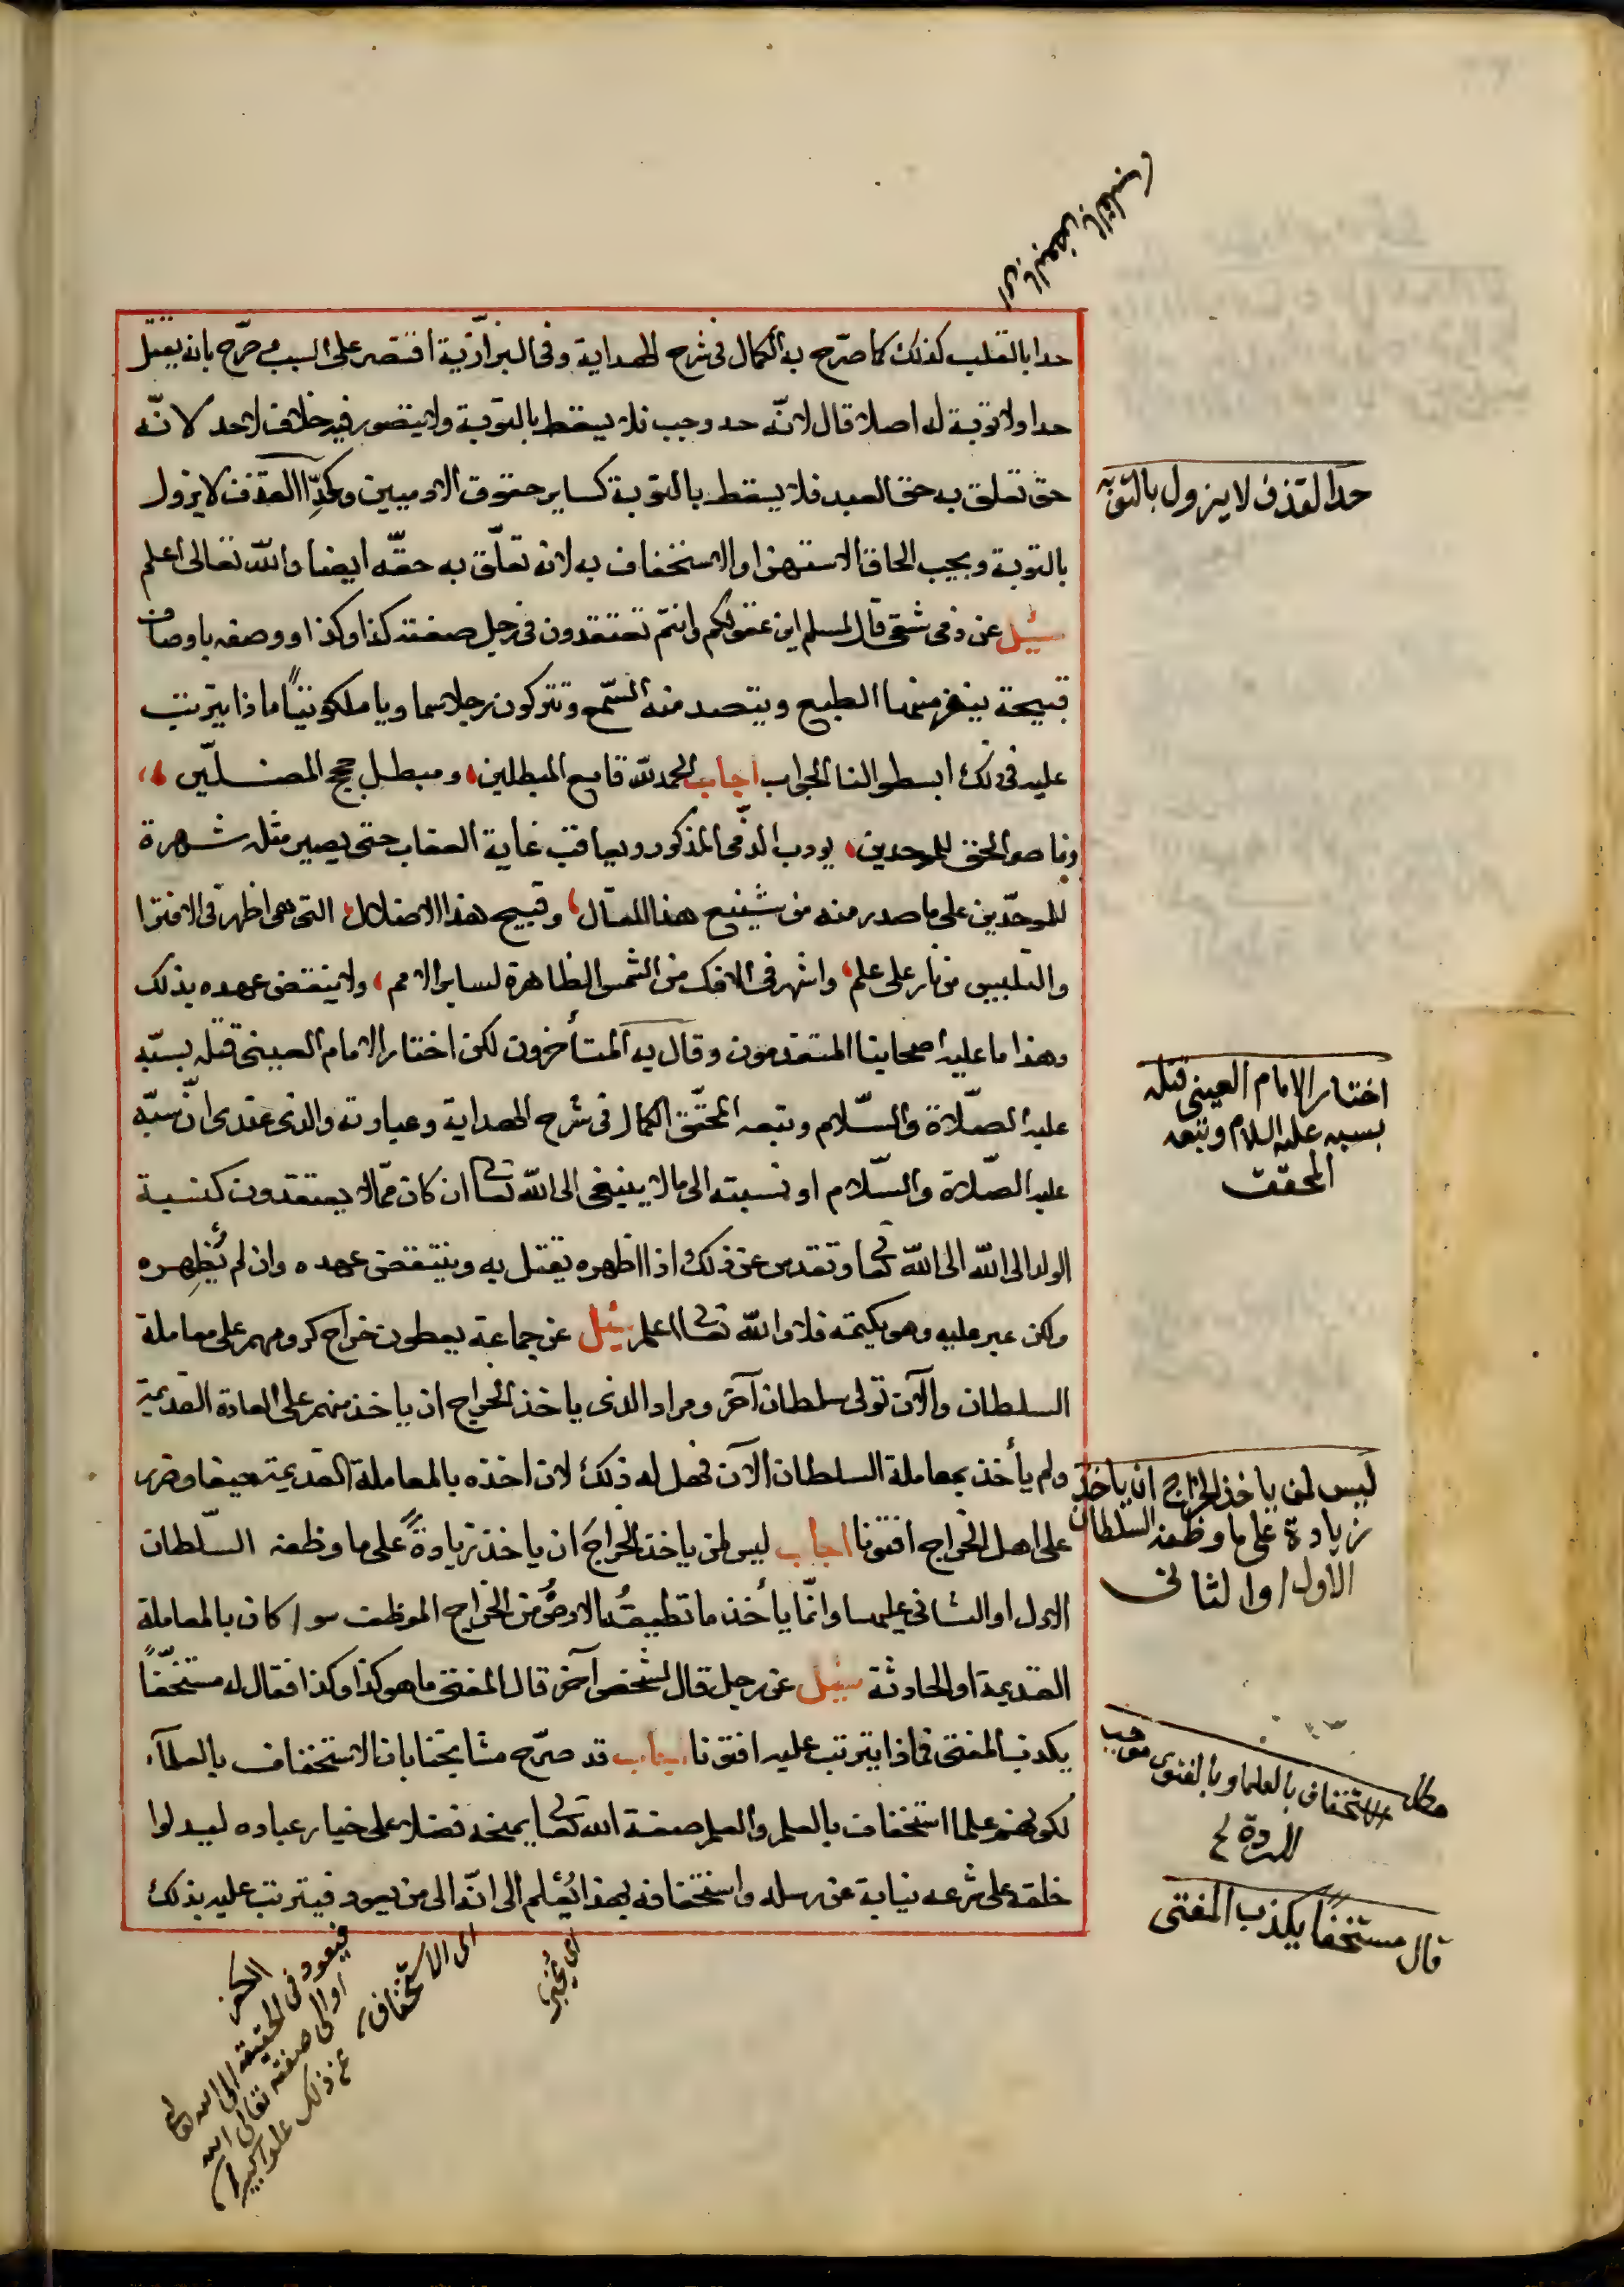 اى البغض بالقلب
حدا بالقلب كذلك كما صرّح به الكمال فى شرح الهداية وفى البزازية اقتصر على السب وصرّح بانه يقتل
حدا ولا توبة له اصلا قال لانّه حد وجب فلا يسقط بالتوبة ولا يتصور فيه خلاف لاحد لانّه
حق تعلق به حق العبد فلا يسقط بالتوبة كساير حقوق الادميين وكحدّ القذف لا يزول
بالتوبة ويجب الحاق الاستهزا والاستخفاف به لانه تعلّق به حقّه ايضا والله تعالى اعلم
سئل عن ذمى شقى قال لمسلم اين عقولكم وانتم تعتقدون فى رجل صفته كذا وكذا ووصفه باوصاف
قبيحة ينفر منها الطبع ويتصد منه السّمع وتتركون رجلا سماويا ملكوتيّا ماذا يترتب
عليه فى ذلك ابسطوا لنا الجواب اجاب الحمد لله قامع المبطلين ومبطل حجج المضلّين
وناصر الحق للموحدين يودب الذّمى المذكور ويعاقب غاية العقاب حتى يصير مثله شهرة
للموحّدين على ما صدر منه من شنيع هذا المقال وقبيح هذا الاضلال التى هى اظهر فى الافترا
والتلبيس من نار على علم واشهر فى الافك من الشمس الظاهرة لساير الامم ولا ينتقض عهده بذلك
وهذا ما عليه اصحابنا المتقدمون وقال به المتأخرون لكن اختار الامام العينى قتله بسبّه
عليه الصّلاة والسّلام وتبعه المحقّق الكمال فى شرح الهداية وعبارته والذى عندى انّ سبّه
عليه الصّلاة والسّلام او نسبته الى ما لا ينبغى الى الله تعا ان كان ممّا لا يعتقدون كنسبة
الولد الى الله الى الله تعا وتقدس عن ذلك اذا اظهره يقتل به وينتقض عهده وان لم يُظهِره
ولكن عبر عليه وهو يكتمه فلا والله تعا اعلم سئل عن جماعة يعطون خراج كرومهم على معاملة
السلطان والآن تولى سلطان آخر ومراد الذى ياخذ الخراج ان ياخذ منهم على العادة القديمة
ولم يأخذ بمعاملة السلطان الآن فهل له ذلك لان اخذه بالمعاملة القديمة حيفا وضرر
على اهل الخراج افتونا اجاب ليس لمن ياخذ الخراجَ ان ياخذ زيادةً على ما وظفه السّلطان
الاول او الثانى عليها وانّما يأخذ ما تطيقُه الارضُ من الخراج الموظف سوا كان بالمعاملة
القديمة او الحادثة سئل عن رجل قال لشخص آخر قال المفتى ما هو كذا وكذا فقال له مستخفّاً
يكذب المفتى فماذا يترتب عليه افتونا اجاب قد صرّح مشايخنا بان الاستخفاف بالعلمآء
لكونهم علما استخفاف بالعلم والعلم صفة الله تعا يمنحه فضلا على خيار عباده ليدلوا
خلقه على شرعه نيابة عن رسله واستخفافه بهذا يُعلم الى انّه الى من يعود فيترتب عليه بذلك
حد القذف لا يزول بالتوبه
اختار الامام العينى قتله
بسبه عليه السلام وتبعه
المحقق
ليس لمن ياخذ الخراج ان ياخذ
زيادة على ما وظفه السلطان
الاول او الثانى
مطل الاستخفاف بالعلما وبالفتوى موجب
للردة
قال مستخفًا يكذب المفتى
اى يُخبر
اى الاستخفاف
فيعود فى الحقيقه الى الله تعالى
او الى صفته تعالى الله
عن ذلك علوا كبيرا
الكفر